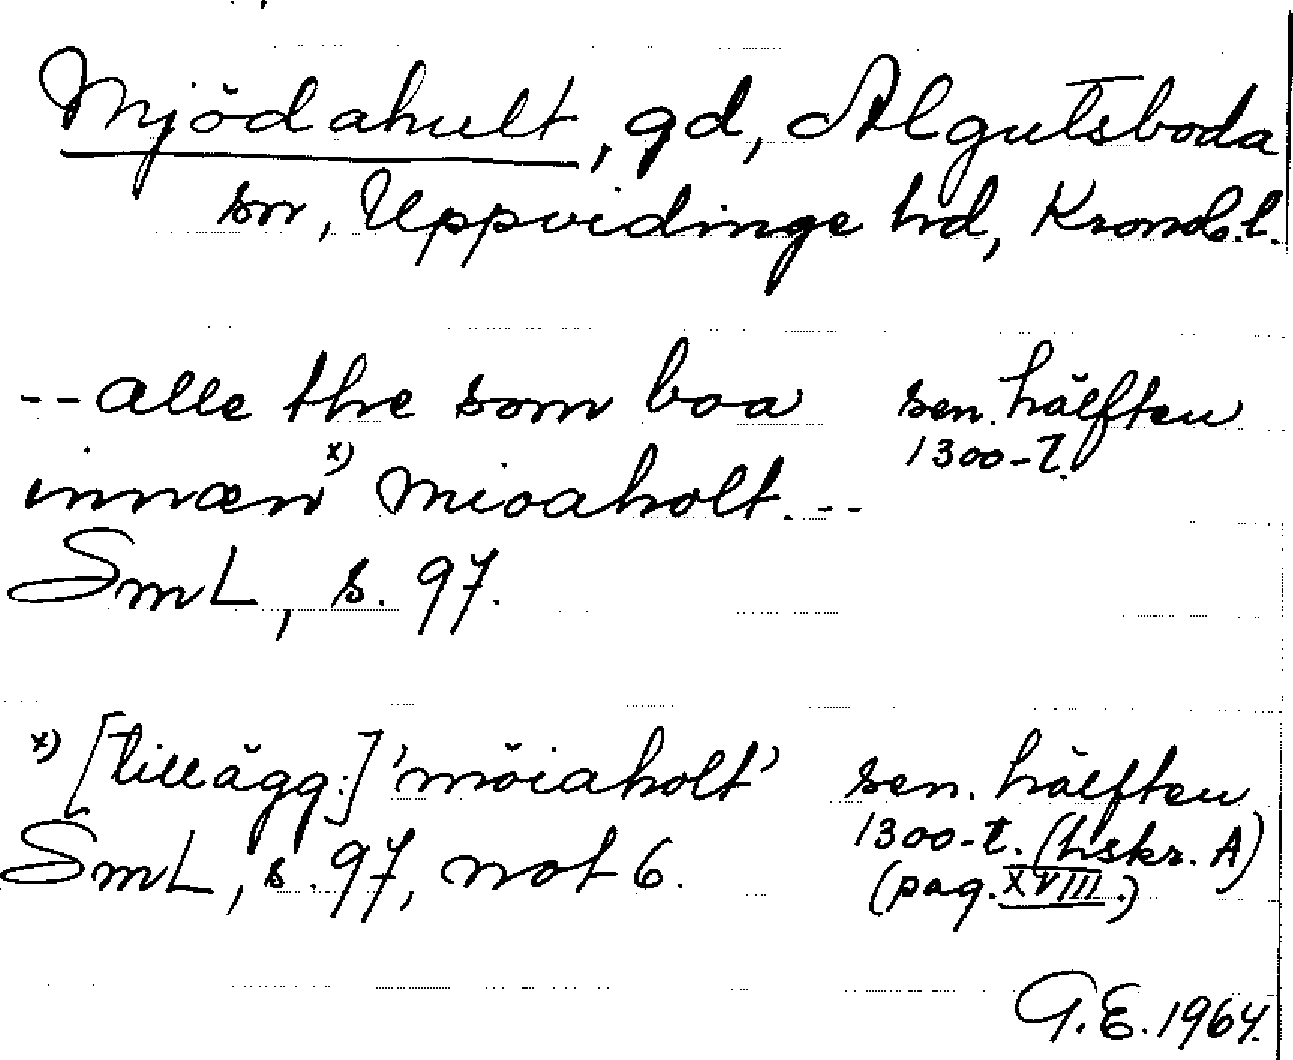 Mjödahult, gd, Algutsboda
sn, Uppvidinge hd, Kronob. l.
--alle the som boa sen. hälften
1300-t.
innæn x) mioaholt.--
SmL, s. 97.
x) [tillägg:] 'möiaholt' sen. hälften
1300-t. (hskr. A)
SmL, s. 97, not 6. (pag. XVIII.)
G.E. 1964.